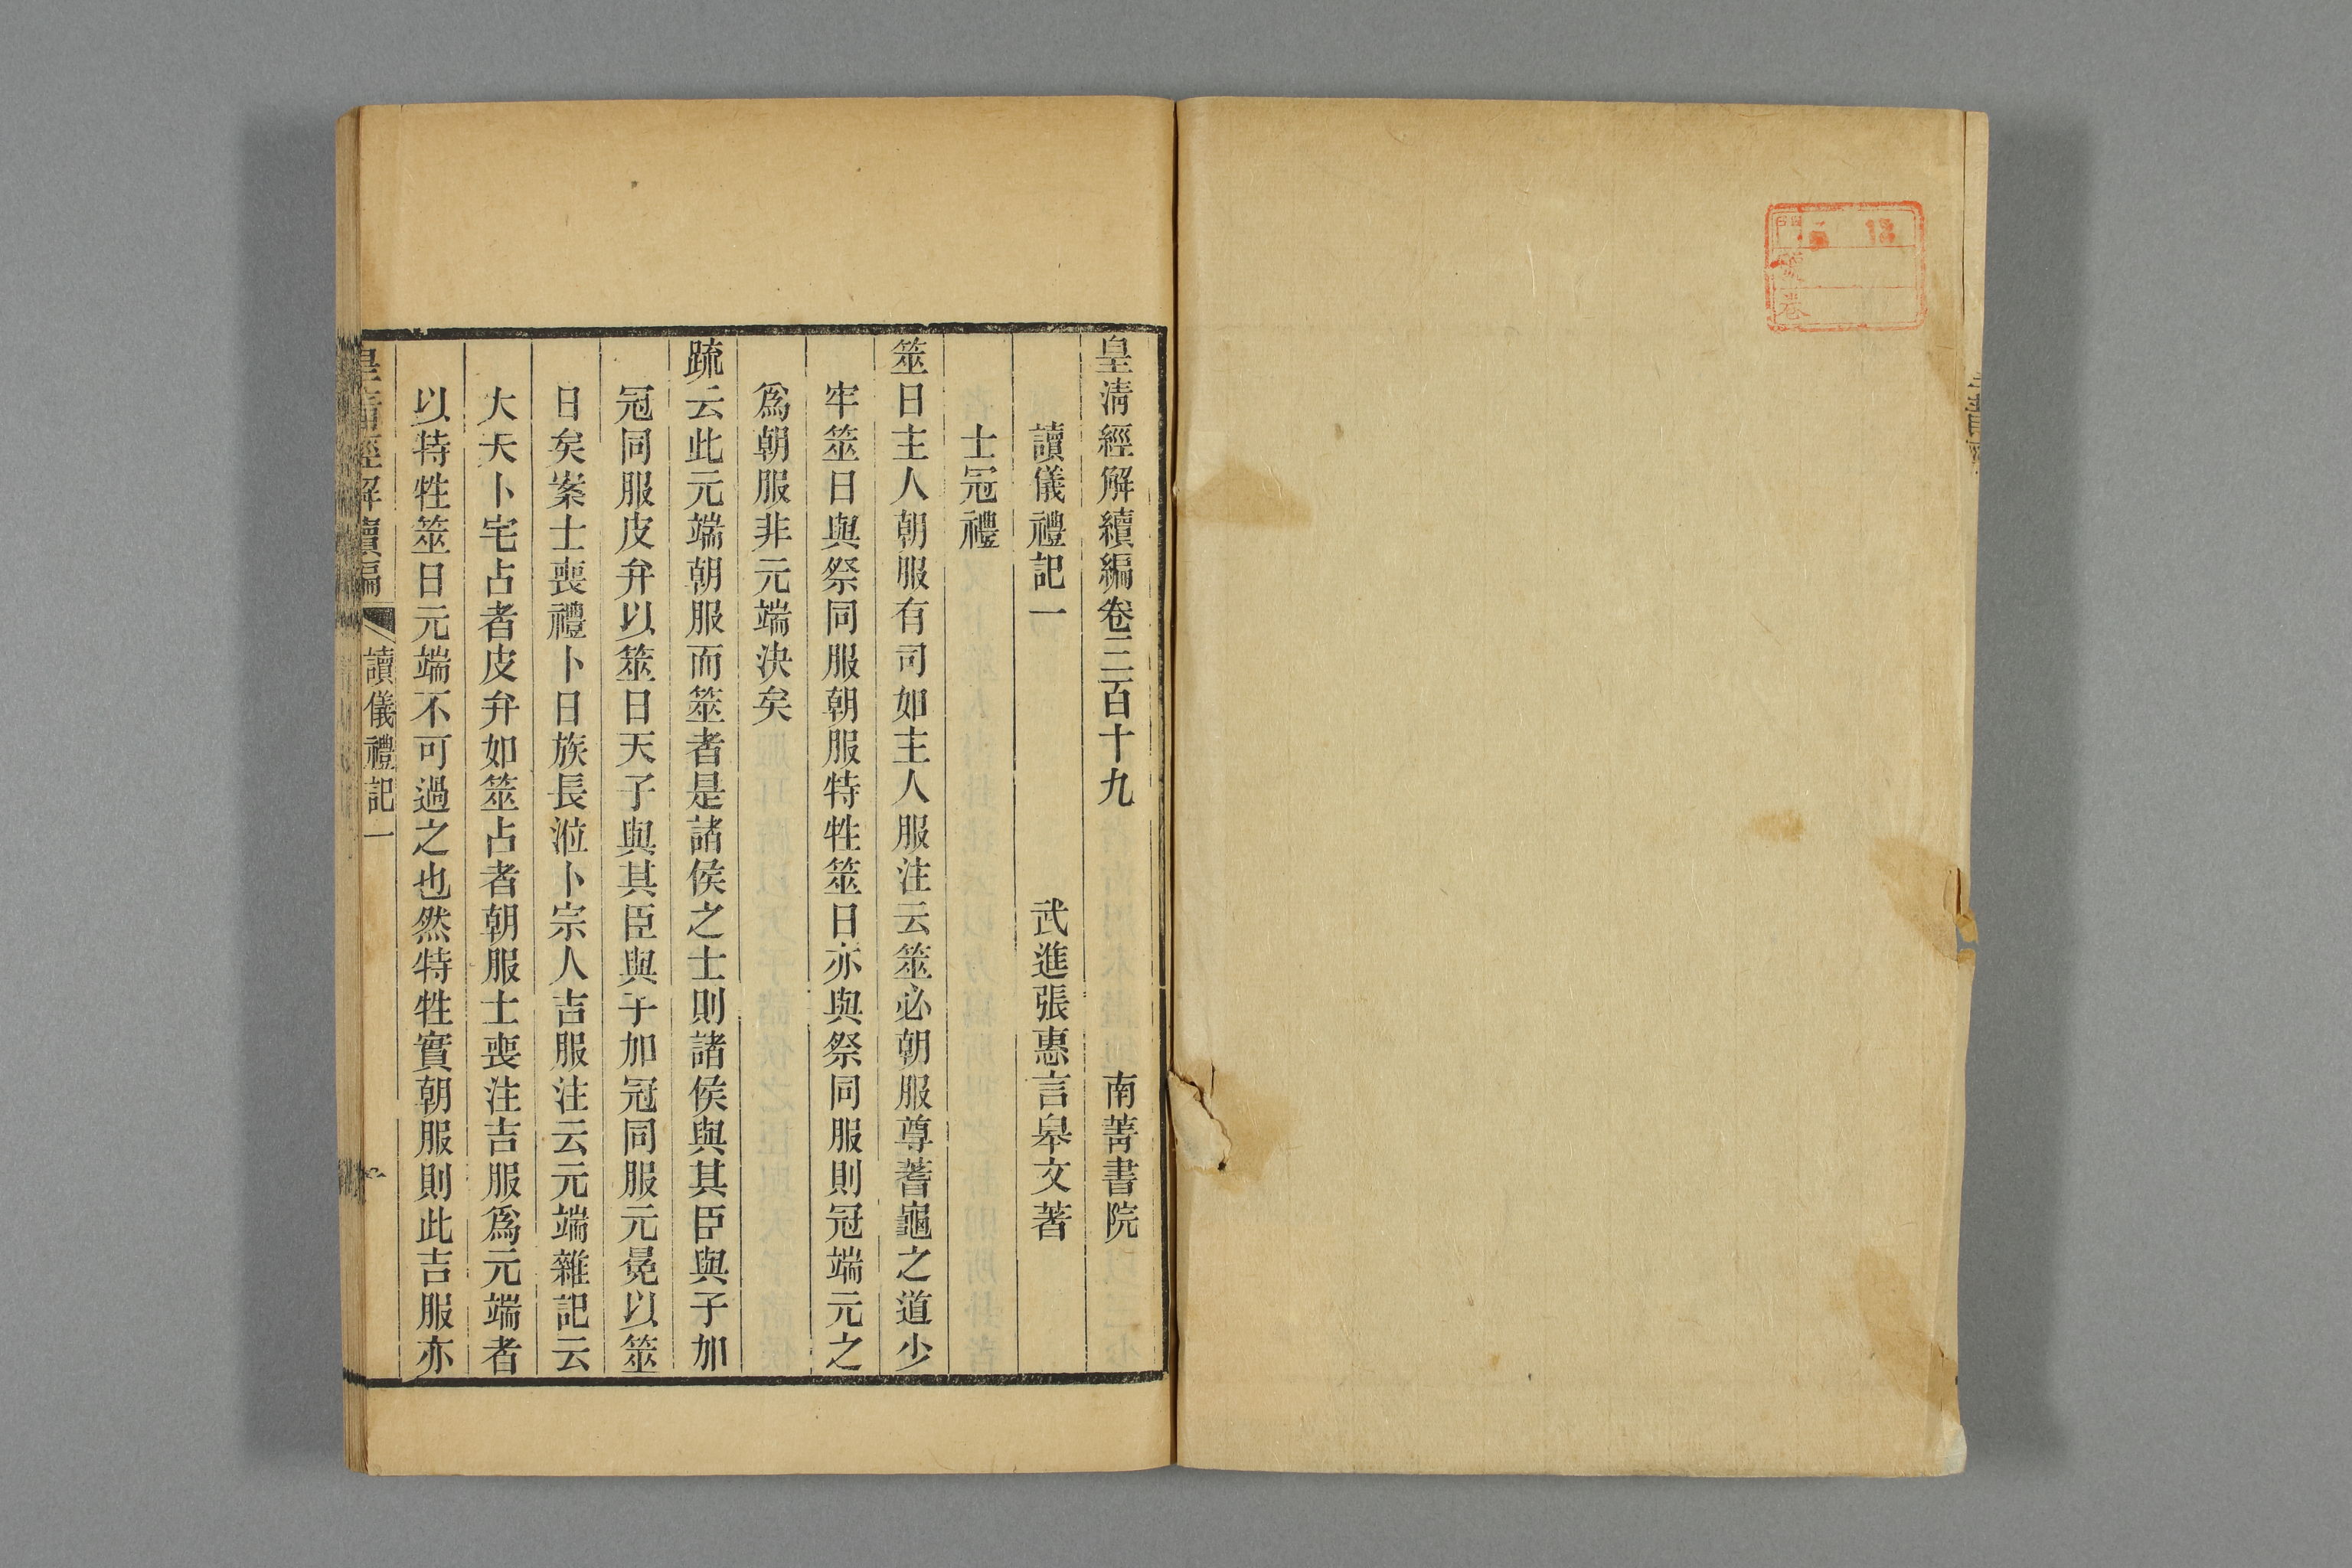 皇清經解續編卷三百十九 南菁書院
讀儀禮記一 武進張惠言皋文著
士冠禮
筮日主人朝服有司如主人服注云筮必朝服尊蓍龜之道少
牢筮日與祭同服朝服特牲筮日亦與祭同服則冠端元之
爲朝服非元端決矣
疏云此元端朝服而筮者是諸侯之士則諸侯與其臣與子加
冠同服皮弁以筮日天子與其臣與子加冠同服元冕以筮
日矣案士喪禮卜日族長涖卜宗人吉服注云元端雜記云
大夫卜宅占者皮弁如筮占者朝服士喪注吉服爲元端者
以特牲筮日元端不可過之也然特牲實朝服則此吉服亦
皇清經解續編 讀儀禮記一
門
號
卷